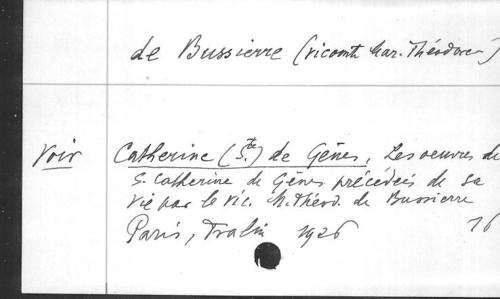 de Bussierre (vicomte Mar. Théodore)
Voir Catherine (Ste.) de Gênes, Les oeuvres de
S. Catherine de Gênes précédées de sa
vie par le vic. M. Théod. de Bussierre
Paris, Tralin 1926 16